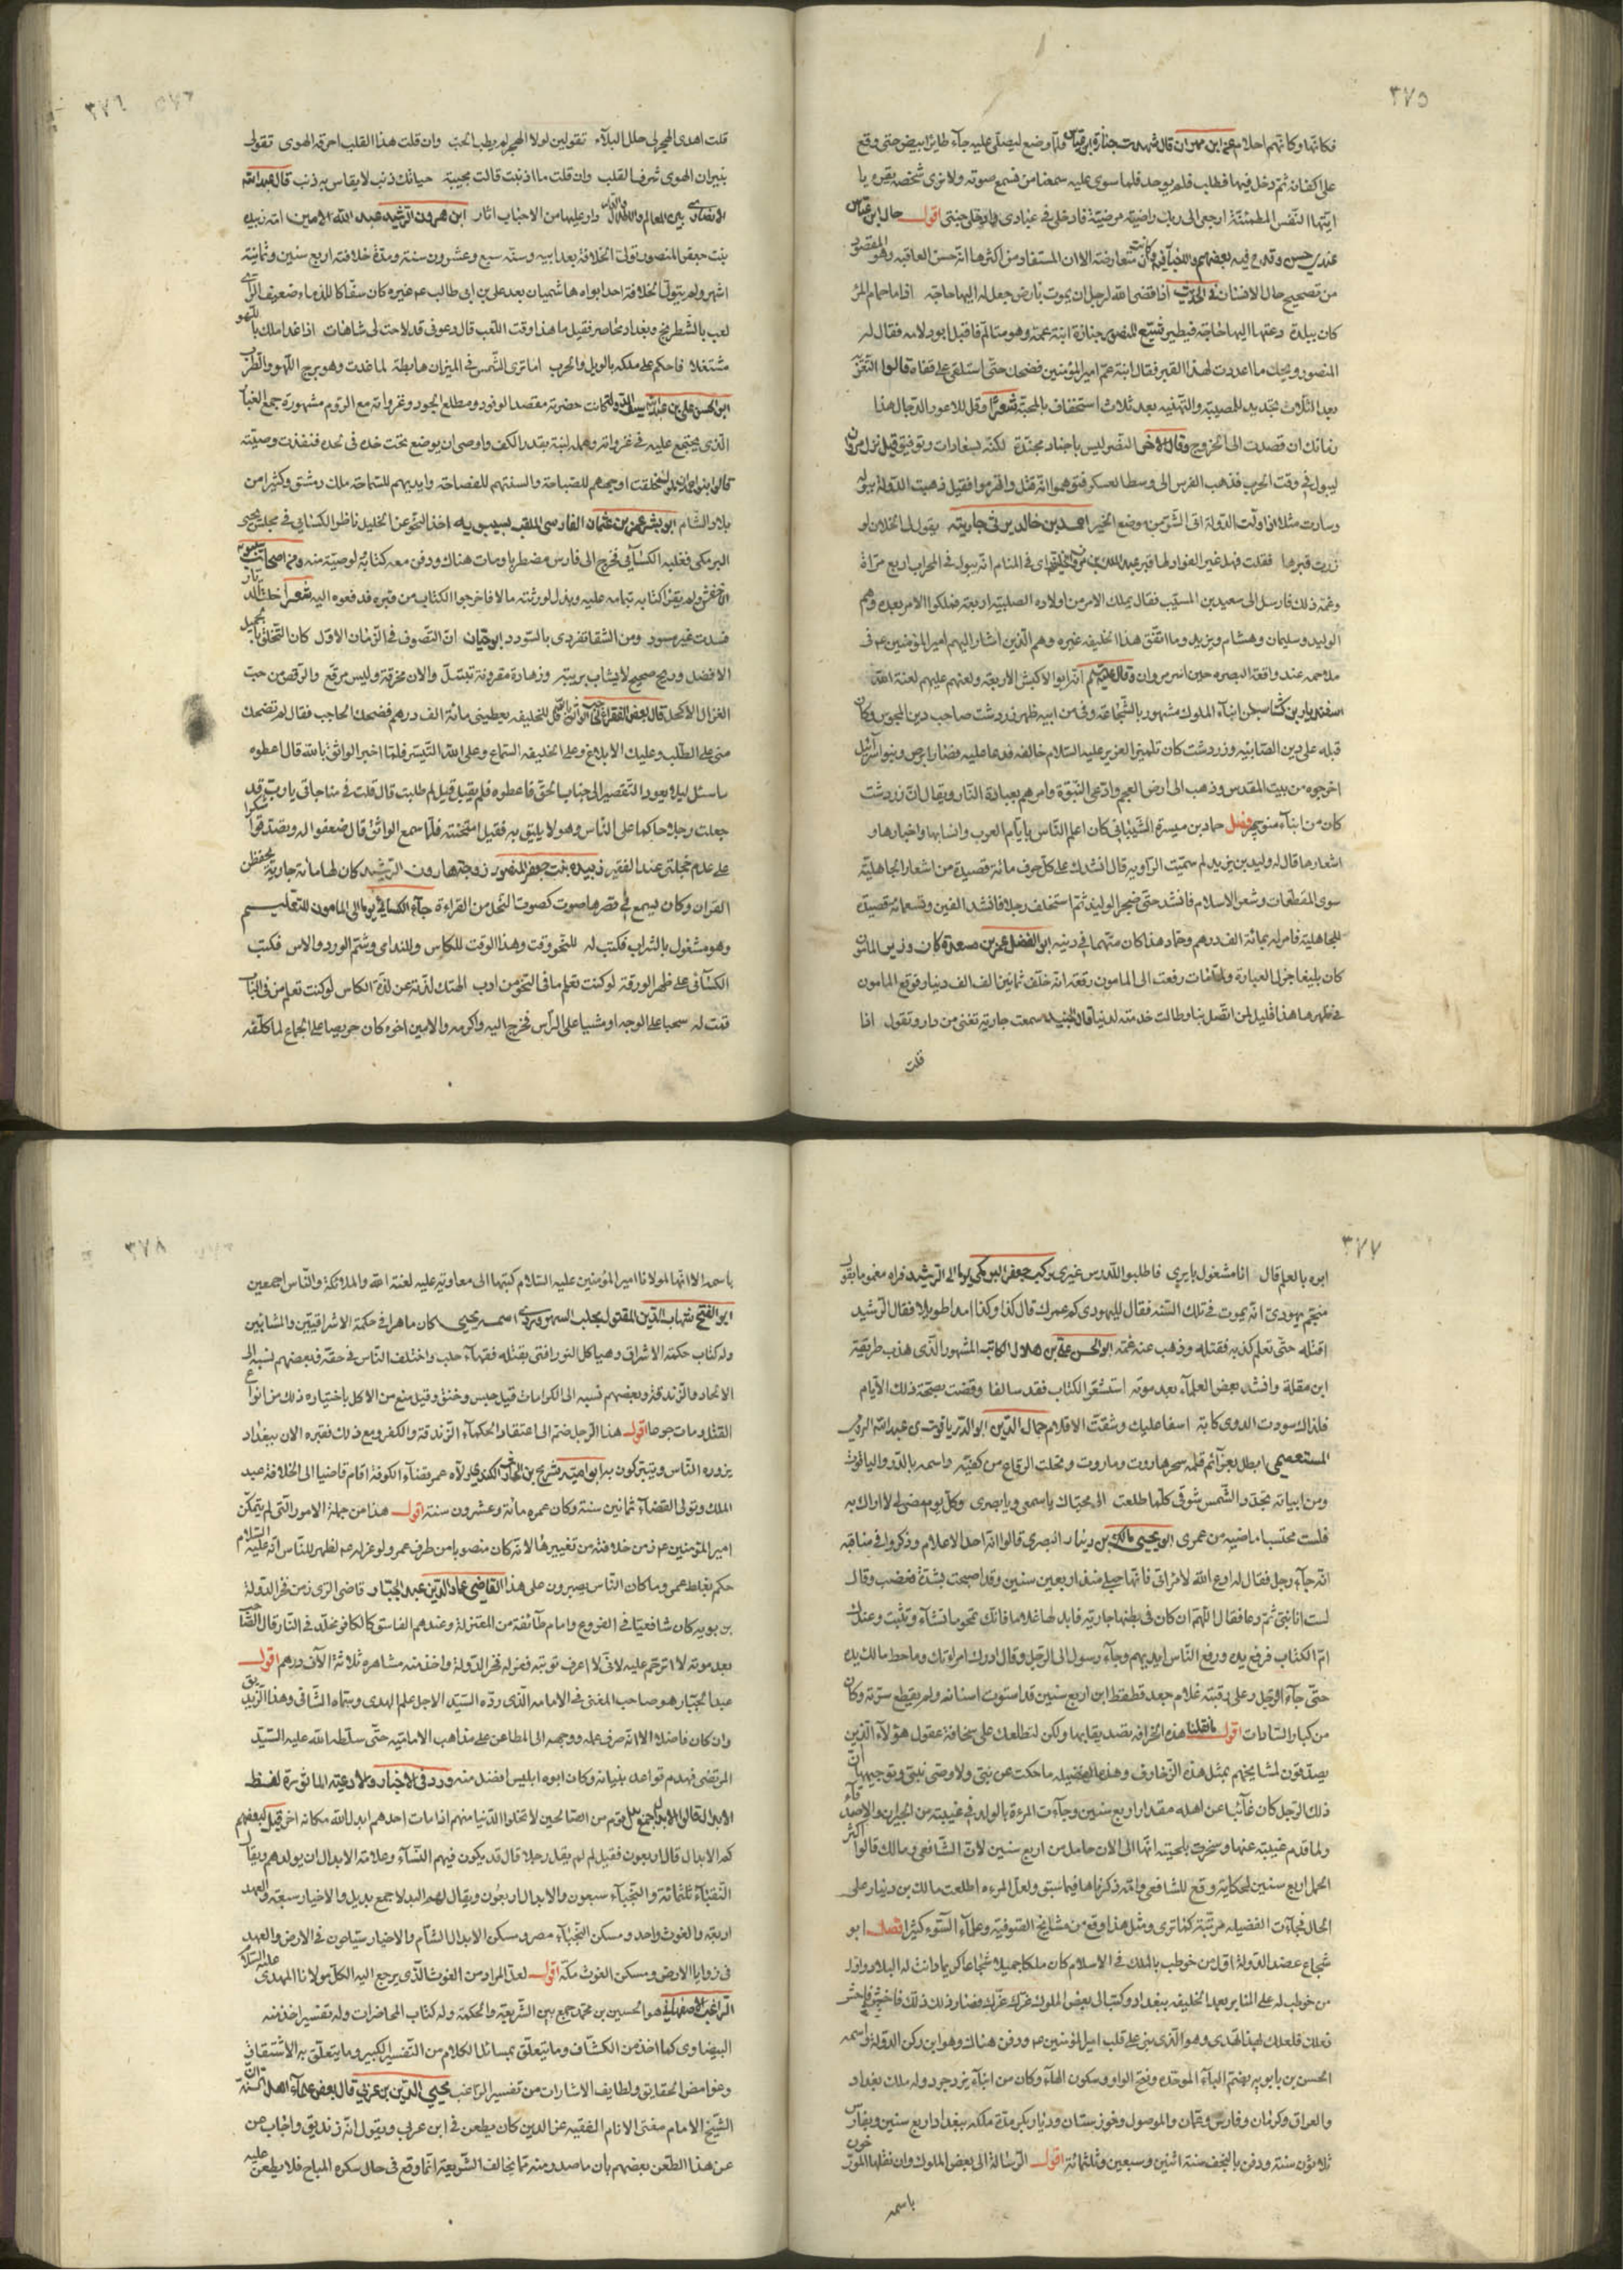 ٣٧٥
فكانها وكانهم احلام عن ابن مهران قال شهدت جنازة ابن عباس فلما وضع ليصلى عليه جاء طائر ابيض حتى وقع
على اكفانه ثم دخل فيها فطلب فلم يوجد فلما سوى عليه سمعنا من نسمع صوته ولا نرى شخصه يقرء يا
ايتها النفس المطمئنة ارجعى الى ربك راضية مرضية فادخلى فى عبادى وادخلى جنتى اقول حال ابن عباس
عندى حسن وقدح فيه بعضهم والاخبار فيه وكانت متعارضة الا ان المستفاد من اكثرها انه حسن العاقبة وهو المقصود
من تصحيح حال الانسان فى الحديث اذا قضى الله لرجل ان يموت بارض جعل له اليها حاجة اذا ما حمام المرء
كان ببلدة دعته اليها حاجة فيطير شيع المنصور جنازة ابنة عمه وهو متالم فاقبل ابو دلامه فقال له
المنصور ويحك ما اعددت لهذا القبر فقال ابنة عم امير المؤمنين فضحك حتى استلقى على قفاه قالوا التعزية
بعد الثلاث تجديد للمصيبة والتهنيه بعد ثلاث استخفاف بالمحبة شعر وقل للاعور الدجال هذا
زمانك ان قصدت الى الخروج وقال الاخر النصر ليس باجناد مجندة لكنه بسعادات وتوفيق قيل نزل مروان
ليبول فى وقت الحرب فذهب الفرس الى وسط العسكر فتوهموا انه قتل وانهزموا فقيل ذهبت الدولة ببوله
وصارت مثلا اذا ولت الدولة اف لشر من وضع الخير احمد بن خالد يرثى جاريته يقول لى الخلان لو
زرت قبرها فقلت وهل غير الفؤاد لها قبر عبد الملك بن مروان الخليفه راى فى المنام انه يبول فى المحراب اربع مرات
وغمه ذلك فارسل الى سعيد بن المسيب فقال يملك الامر من اولاده الصلبية اربعة فملكوا الامر بعده وهم
الوليد وسليمان وهشام ويزيد وما اتفق هذا لخليفه غيره وهم الذين اشار اليهم امير المؤمنين ع فى
ملاحمه عند واقعة البصره حين اسر مروان وقال عليه السلم انه ابو الاكبش الاربعة ولعنهم عليهم لعنة الله
اسفنديار بن كشتاسب من ابناء الملوك مشهور بالشجاعة وفى زمن ابيه ظهر زردشت صاحب دين المجوس وكان
قبله على دين الصابئيه وزردشت كان تلميذ العزير عليه السلام خالفه فدعا عليه فصار ابرص وبنو اسرائيل
اخرجوه من بيت المقدس وذهب الى ارض العجم وادعى النبوة وامرهم بعبادة النار ويقال ان زردشت
كان من ابناء منوچهر فصل حماد بن ميسرة الشيبانى كان اعلم الناس بايام العرب وانسابها واخبارها و
اشعارها قال له وليد بن يزيد لم سميت الراويه قال انشدك على كل حرف مائة قصيدة من اشعار الجاهلية
سوى المقطعات وشعر الاسلام فانشد حتى ضجر الوليد ثم استخلف رجلا فانشد الفين وتسعمائه قصيدة
للجاهلية فامر له بمائة الف درهم وحماد هذا كان متهما فى دينه ابو الفضل عمر بن مسعدة كان وزير المامون
كان بليغا جزل العبارة ولما مات رفعت الى المامون رقعة انه خلف ثمانين الف الف دينار فوقع المامون
فى ظهرها هذا قليل لمن اتصل بنا وطالت خدمته لدنيا قال الجنيد سمعت جارية تغنى من دار وتقول اذا
قلت
٣٧٦
قلت اهدى الهجر لى حلل البلاء تقولين لولا الهجر لم يطب الحب وان قلت هذا القلب احرقه الهوى تقولى
بنيران الهوى شرف القلب وان قلت ما اذنبت قالت مجيبة حياتك ذنب لا يقاس به ذنب قال عبد الله
الانصارى بين المعالم والاطلال والدار وار عليها من الاحباب اثار ابن هرون الرشيد عبد الله الامين امه زبيده
بنت جعفر المنصور تولى الخلافة بعد ابيه وسنه سبع وعشرون سنة ومدة خلافته اربع سنين وثمانية
اشهر ولم يتول الخلافة احد ابواه هاشميان بعد على بن ابى طالب ع غيره كان سفاكا للدماء ضعيف الراى
لعب بالشطرنج وبغداد محاصر فقيل ما هذا وقت اللعب قال دعونى قد لاحت لى شاهمات اذا غدا ملك باللهو
مشتغلا فاحكم على ملكه بالويل والحرب اما ترى الشمس فى الميزان هابطة لما غدت وهو برج اللهو والطرب
ابو الحسن على بن عبد الله سيف الدوله كانت حضرته مقصد الوفود ومطلع الجود وغزواته مع الروم مشهورة جمع الغبار
الذى يجتمع عليه فى غزواته وعمله لبنة بقدر الكف واوصى ان يوضع تحت خده فى لحده فنفذت وصيته
قالوا بنو حمدان خلقت اوجههم للصباحة والسنتهم للفصاحة وايديهم للسماحة ملك دمشق وكثيرا من
بلاد الشام ابو بشر عمر بن عثمان الفارسى الملقب بسيبويه اخذ النحو عن الخليل ناظر الكسائى فى مجلس يحيى
البرمكى فغلبه الكسائى فخرج الى فارس مضطربا ومات هناك ودفن معه كتابه لوصية منه ومن اصحاب سيبويه
الاخفش ولم يقرء كتابه تمامه عليه وبذل لورثته مالا فاخرجوا الكتاب من قبره فدفعوه اليه شعر خلت الديار
فسدت غير مسود ومن الشقا تفردى بالسودد ابو حيان ان التصوف فى الزمان الاول كان التخلق بالجميل
الافضل ودع صحيح لا يشاب بريبة وزهادة مقرونة بتبتل والان مخرقة وليس مرقع والرقص من حب
الغزال الاكحل قال بعض الفقراء لحاجب الواثق بالله قل للخليفه يعطينى مائة الف درهم فضحك الحاجب فقال لم تضحك
منى على الطلب وعليك الابلاغ وعلى الخليفه السماع وعلى الله التيسر فلما اخبر الواثق بالله قال اعطوه
ما سئل ليلا يعود التقصير الى جناب الحق فاعطوه فلم يقبل قيل لم طلبت قال قلت فى مناجاتى يا رب قد
جعلت رجلا حاكما على الناس وهو لا يليق به فقيل امتحنته فلما سمع الواثق قال ضعفوا له وتصدقوا شكرا
على عدم خجلتى عند الفقير زبيده بنت جعفر المنصور زوجتها هارون الرشيد كان لها مائة جارية يحفظن
القران وكان يسمع فى قصرها صوت كصوت النحل من القراءة جاء الكسائى يوما الى المامون للتعليم
وهو مشغول بالشراب فكتب له للنحو وقت وهذا الوقت للكاس وللندامى وشم الورد والاس فكتب
الكسائى على ظهر الورقة لو كنت تعلم ما فى النحو من ادب الهتك لذته عن لذة الكاس لو كنت تعلم من فى الباب
قمت له سحبا على الوجه او مشيا على الراس فخرج اليه واكرمه والامين اخوه كان حريصا على الجماع لما كلفه
٣٧٧
ابوه بالعلم قال انا مشغول بايرى فاطلبوا للدرس غيرى ركب جعفر البرمكى يوما الى الرشيد فراه مغموما بقول
منجم يهودى انه يموت فى تلك السنه فقال لليهودى كم عمرك قال كذا وكذا امدا طويلا فقال للرشيد
اقتله حتى تعلم كذبه فقتله وذهب عنه غمه ابو الحسن على بن هلال الكاتب المشهور الذى هذب طريقة
ابن مقلة وانشد بعض العلماء بعد موته استشعر الكتاب فقدك سالفا وقضت بصحة ذلك الايام
فلذاك سودت الدوى كابة اسفا عليك وشقت الاقلام جمال الدين ابو الدر ياقوت بن عبد الله الرومى
المستعصمى ابطل بعزائم قلمه سحر هاروت وماروت واسمه بالدر والياقوت
ومن ابياته تجدد الشمس شوقى كلما طلعت الى محياك يا سمعى ويا بصرى وكل يوم مضى لى لا اراك به
فلست محتسبا ماضيه من عمرى ابو يحيى مالك بن دينار البصرى قالوا انه احد الاعلام وذكروا فى مناقبه
انه جاءه رجل فقال له ادع الله لامراتى فانها حبلى منذ اربعين سنين وقد اصبحت بشدة فغضب وقال
لست انا بنبى ثم دعا فقال اللهم ان كان فى بطنها جارية فابدلها غلاما فانك تمحو ما تشاء وتثبت وعندك
ام الكتاب فرفع يده ورفع الناس ايديهم وجاء رسول الى الرجل وقال ادرك امراتك وما حط مالك يده
حتى جاء الرجل وعلى رقبته غلام جعد قطط ابن اربع سنين قد استوت اسنانه ولم يقطع سرته وكان
من كبار السادات اقول ما نقلنا هذه الخرافه تصديقا بها ولكن لتطلعك على سخافة عقول هؤلاء الذين
يصدقون لمشايخهم بمثل هذه الزخارف وهذه الفضيله ما حكت عن نبى ولا وصى نبى وتوجيهها ان
ذلك الرجل كان غائبا عن اهله مقدار اربع سنين وجاءت المرءة بالولد فى غيبته من الجيران والاصدقاء
ولما قدم غيبته عنها وسخرت بلحيته انها الى الان حامل من اربع سنين لان الشافعى ومالك قالوا اكثر
الحمل اربع سنين لحكاية وقع للشافعى وامه ذكرناها فيما سبق ولعل المرءه اطلعت مالك بن دينار على
الحال فجاءت الفضيله مرتبة كما ترى ومثل هذا وقع من مشايخ الصوفية وعلماء السوء كثيرا فصل ابو
شجاع عضد الدولة اول من خوطب بالملك فى الاسلام كان ملكا جميلا شجاعا كريما دانت له البلاد واول
من خوطب له على المنابر بعد الخليفه ببغداد وكتب الى بعض الملوك غرك عزك فصار قصار ذلك ذلك فاخش فاحش
فعلك فلعلك بهذا تهدى وهو الذى بنى على قلب امير المؤمنين ع ودفن هناك وهو ابن ركن الدوله واسمه
الحسن بن بابويه بضم الباء الموحده وفتح الواو وسكون الهاء وكان من ابناء يزدجرد وله ملك بغداد
والعراق وكرمان وفارس وعمان والموصول وخوزستان وديار بكر مدة ملكه ببغداد اربع سنين وبفارس
ثلاثون سنة ودفن بالنجف سنة اثنين وسبعين وثلثمائة اقول الرسالة الى بعض الملوك وان نقلها المورخون
باسمه
٣٧٨
باسمه الا انها لمولانا امير المؤمنين عليه السلام كتبها الى معاويه عليه لعنة الله والملائكة والناس اجمعين
ابو الفتح شهاب الدين المقتول بحلب السهروردى اسمه يحيى كان ماهرا فى حكمة الاشراقيين والمشائين
وله كتاب حكمة الاشراق وهياكل النور افتى بقتله فقهاء حلب واختلف الناس فى حقه فبعضهم نسبه الى
الالحاد والزندقة وبعضهم نسبه الى الكرامات قيل حبس وخنق وقيل منع من الاكل باختياره ذلك من انواع
القتل ومات جوعا اقول هذا الرجل ضم الى اعتقاد الحكماء الزندقة والكفر ومع ذلك فقبره الان ببغداد
يزوره الناس ويتبركون به ابو اميه شريح بن الحارث الكندى ولاه عمر بقضاء الكوفة اقام قاضيا الى خلافة عبد
الملك وتولى القضاء ثمانين سنة وكان عمره مائة وعشرون سنة اقول هذا من جملة الامور التى لم يتمكن
امير المؤمنين ع زمن خلافته من تغييرها لانه كان منصوبا من طرف عمر ولو عزله ع لظهر للناس انه عليه السلام
حكم بغلط عمر وما كان الناس يصبرون على هذا القاضى عماد الدين عبد الجبار قاضى الرى زمن فخر الدولة
بن بويه كان شافعيا فى الفروع وامام طائفة من المعتزلة وعندهم الفاسق كالكافر مخلد فى النار قال الصاحب
بعد موته لا اترحم عليه لانى لا اعرف توبته فعزله فخر الدولة واخذ منه مشاهره ثلاثة الاف درهم اقول
عبد الجبار هو صاحب المغنى فى الامامه الذى رده السيد الاجل علم الهدى وسماه الشافى وهذا الزنديق
وان كان فاضلا الا انه صرف علمه ووجهه الى المطاعن على مذاهب الامامية حتى سلطه الله عليه السيد
المرتضى فهدم قواعد بنيانه وكان ابوه ابليس افضل منه ورد فى الاخبار والادعية الماثورة لفظ
الابدال قالوا الابدال جمع بدل قوم من الصالحين لا تخلوا الدنيا منهم اذا مات احدهم ابدل الله مكانه اخر قيل لبعضهم
كم الابدال قال اربعون فقيل لم لم يقل رجلا قال قد يكون فيهم النساء وعلامة الابدال ان يولد لهم ويقال
النقباء ثلثمائة والنجباء سبعون والابدال اربعون ويقال لهم البدلا جمع بديل والاخيار سبعة والعمد
اربعة والغوث واحد ومسكن النجباء مصر ومسكن الابدال الشام والاخيار سياحون فى الارض والعمد
فى زوايا الارض ومسكن الغوث مكة اقول لعل المراد من الغوث الذى يرجع اليه الكل مولانا المهدى عليه السلام
الراغب الاصفهانى هو الحسين بن محمد جمع بين الشريعة والحكمة وله كتاب المحاضرات وله تفسير اخذ منه
البيضاوى كما اخذ من الكشاف وما يتعلق بمسائل الكلام من التفسير الكبير وما يتعلق به الاشتقاق
وغوامض الحقايق ولطايف الاشارات من تفسير الراغب محيى الدين بن عربى قال بعض علماء اهل السنة ان
الشيخ الامام مفتى الانام الفقيه عز الدين كان يطعن فى ابن عربى ويقول انه زنديق واجاب عن
عن هذا الطعن بعضهم بان ما صدر منه مما يخالف الشريعة انما وقع فى حال سكره المباح فلا يطعن عليه